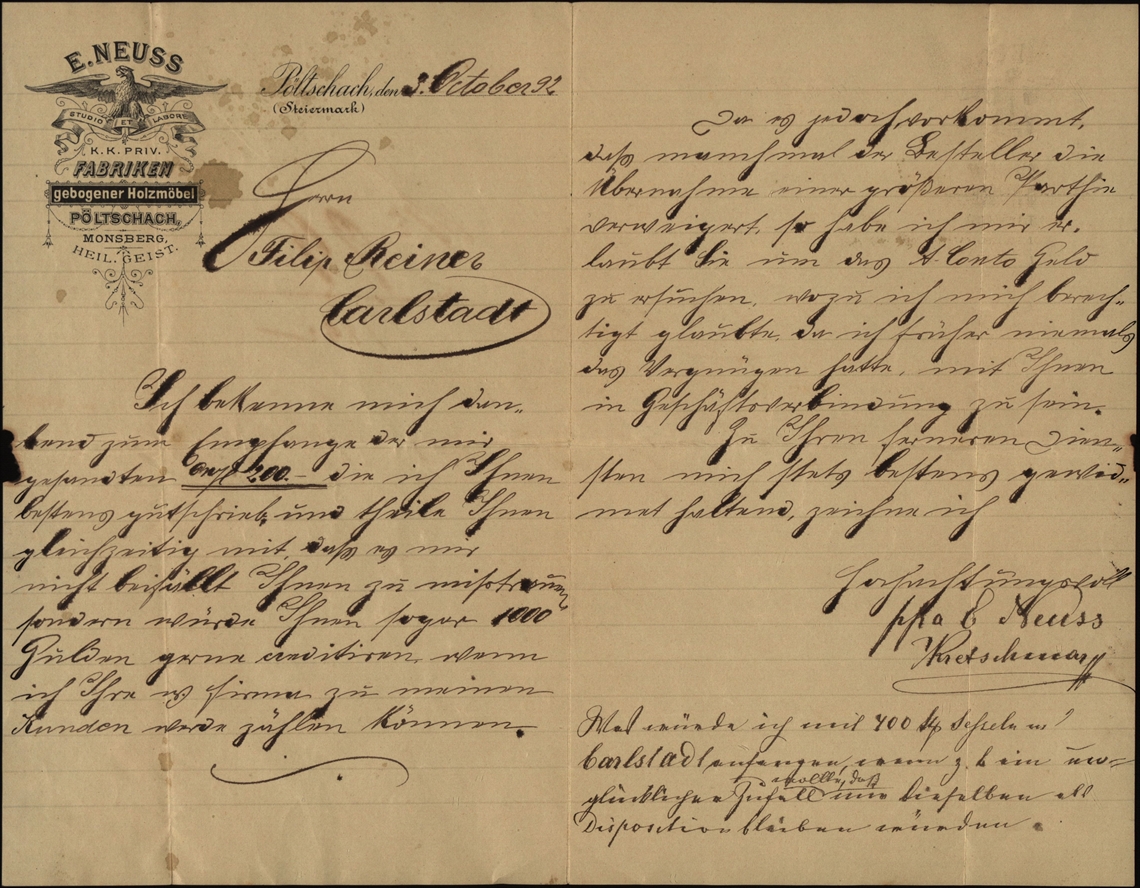 E. NEUSS
STUDIO ET LABOR
K. K. PRIV.
FABRIKEN
gebogener Holzmöbel
PÖLTSCHACH,
MONSBERG,
HEIL. GEIST.
Pöltschach, den 3. October 92
(Steiermark)
Herrn
Filip Reiner
Carlstadt
Ich bekenne mich dan-
kend zum Empfange der mir
gesandten 200.- die ich Ihnen
bestens gutschrieb, und theile Ihnen
gleichzeitig mit, daß es mir
nicht beifällt Ihnen zu misstrauen
sondern würde Ihnen sogar 1000
Gulden gerne creditiren, wenn
ich Ihre w. Firma zu meinen
Kunden werde zählen können.
Da es jedoch vorkommt,
daß manchmal der Besteller die
Übernahme einer größeren Parthie
verweigert, so habe ich mir er-
laubt Sie um das A Conto Geld
zu ersuchen, wozu ich mich berech-
tigt glaubte, da ich früher niemals
das Vergnügen hatte, mit Ihnen
in Geschäftsverbindung zu sein.
Zu Ihren ferneren Dien-
sten mich stets bestens gewid-
met haltend, zeichne ich
Hochachtungsvoll
ppa E Neuss
Kretschmar
Was würde ich mit 400 Sesseln in
Carlstadt anfangen, wenn z. b ein un-
glücklicher Zufall wollte, daß mir dieselben als
Disposition bleiben würden.